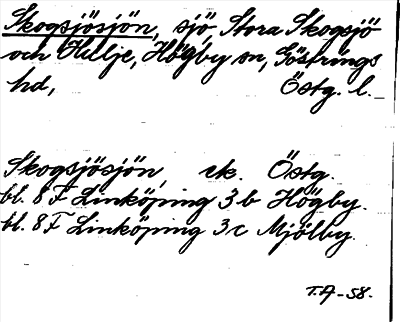 Skogsjösjön, sjö, Stora Skogsjö
och Ullje, Högby sn, Göstrings
hd, Östg. l.
Skogsjösjön, ek. Östg.
bl. 8 F Linköping 3 b Högby.
bl. 8 F Linköping 3 c Mjölby.
T.A-58.